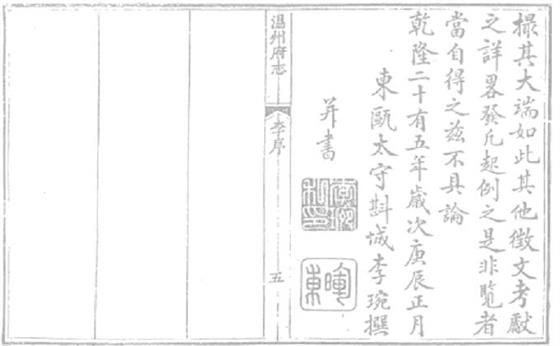 撮其大端如此其他徵文考獻
之詳畧發凡起例之是非覽者
當自得之茲不具論
乾隆二十有五年歲次庚辰正月
東甌太守斟城李琬撰
并書
溫州府志
李序
五